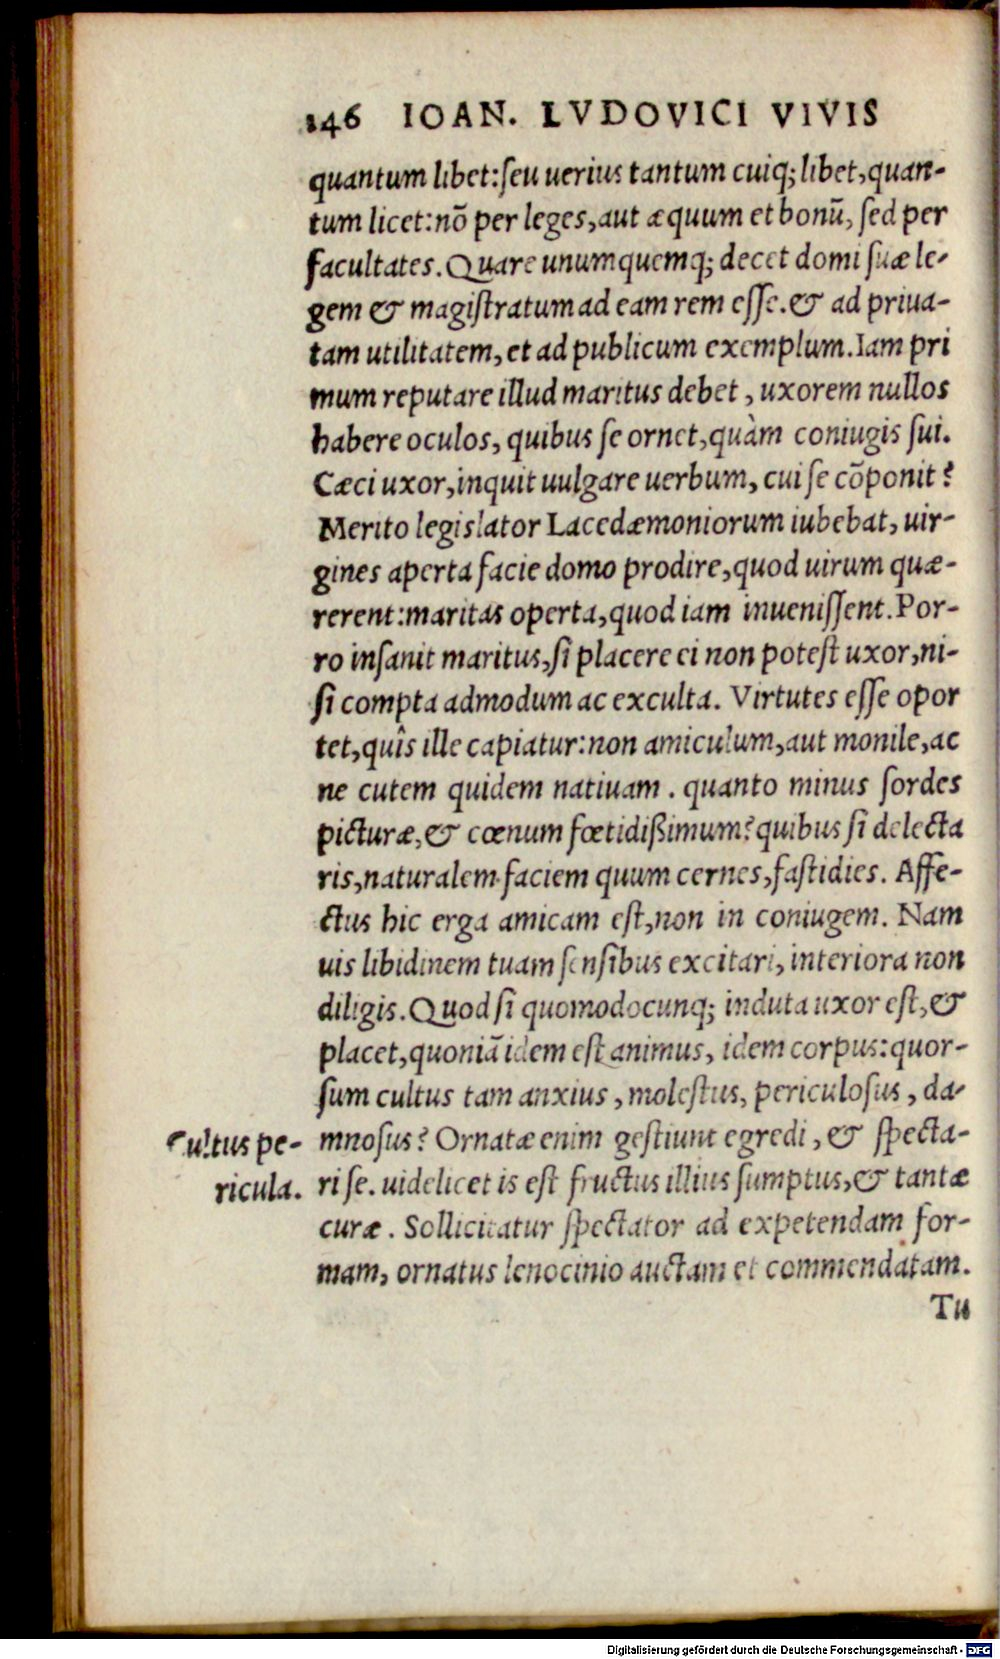 146 IOAN. LVDOVICI VIVIS
quantum libet: ſeu uerius tantum cuiq; libet, quan-
tum licet: nō per leges, aut æquum et bonū, ſed per
facultates. Quare unumquemq; decet domi ſuæ le-
gem & magiſtratum ad eam rem eſſe. & ad priua-
tam utilitatem, et ad publicum exemplum. Iam pri
mum reputare illud maritus debet, uxorem nullos
habere oculos, quibus ſe ornet, quàm coniugis ſui.
Cæci uxor, inquit uulgare uerbum, cui ſe cōponit?
Merito legislator Lacedæmoniorum iubebat, uir-
gines aperta facie domo prodire, quod uirum quæ-
rerent: maritas operta, quod iam inueniſſent. Por-
ro inſanit maritus, ſi placere ei non poteſt uxor, ni-
ſi compta admodum ac exculta. Virtutes eſſe opor
tet, quîs ille capiatur: non amiculum, aut monile, ac
ne cutem quidem natiuam. quanto minus ſordes
picturæ, & cœnum fœtidißimum? quibus ſi delecta
ris, naturalem faciem quum cernes, faſtidies. Affe-
ctus hic erga amicam eſt, non in coniugem. Nam
uis libidinem tuam ſenſibus excitari, interiora non
diligis. Quod ſi quomodocunq; induta uxor eſt, &
placet, quoniā idem eſt animus, idem corpus: quor-
ſum cultus tam anxius, moleſtus, periculoſus, da-
Cultus pe- mnoſus? Ornatæ enim geſtiunt egredi, & ſpecta-
ricula. ri ſe. uidelicet is eſt fructus illius ſumptus, & tantæ
curæ. Sollicitatur ſpectator ad expetendam for-
mam, ornatus lenocinio auctam et commendatam.
Tu
Digitalisierung gefördert durch die Deutsche Forschungsgemeinschaft - DFG